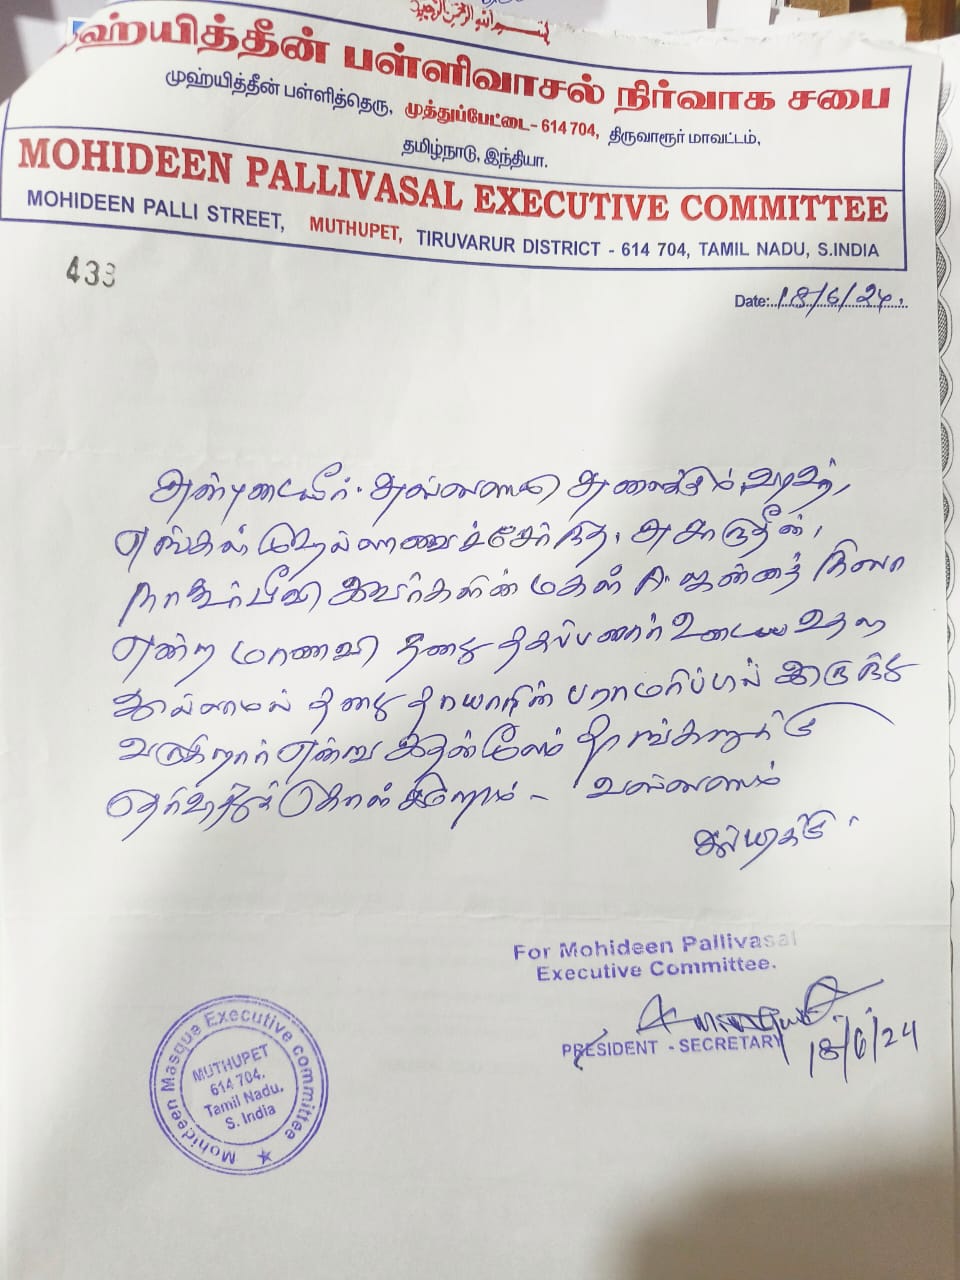 بسم الله الرحمن الرحيم
ஹ்யித்தீன் பள்ளிவாசல் நிர்வாக சபை
முஹ்யித்தீன் பள்ளித்தெரு, முத்துப்பேட்டை - 614 704, திருவாரூர் மாவட்டம்,
தமிழ்நாடு, இந்தியா.
MOHIDEEN PALLIVASAL EXECUTIVE COMMITTEE
MOHIDEEN PALLI STREET, MUTHUPET, TIRUVARUR DISTRICT - 614 704, TAMIL NADU, S.INDIA
433
Date: 18/6/24.
அன்புடையீர். அஸ்ஸலாமு அலைக்கும்
எங்கள் முஹல்லாவைச்சேர்ந்த,
நாகூர்பீவி இவர்களின் மகள் A. ஜன்னத் நிஷா
என்ற மாணவி தனது தகப்பனார் உடைய உதவி
இல்லாமல் தனது தாயாரின் பராமரிப்பில் இருந்து
வருகிறார் என்பதை இதன்மூலம் தங்களுக்கு
தெரிவித்துக் கொள்கிறோம் - வஸ்ஸலாம்
For Mohideen Pallivasal
Executive Committee.
PRESIDENT - SECRETARY
18/6/24
Mohideen Masque Executive committee
MUTHUPET
614 704.
Tamil Nadu.
S. India